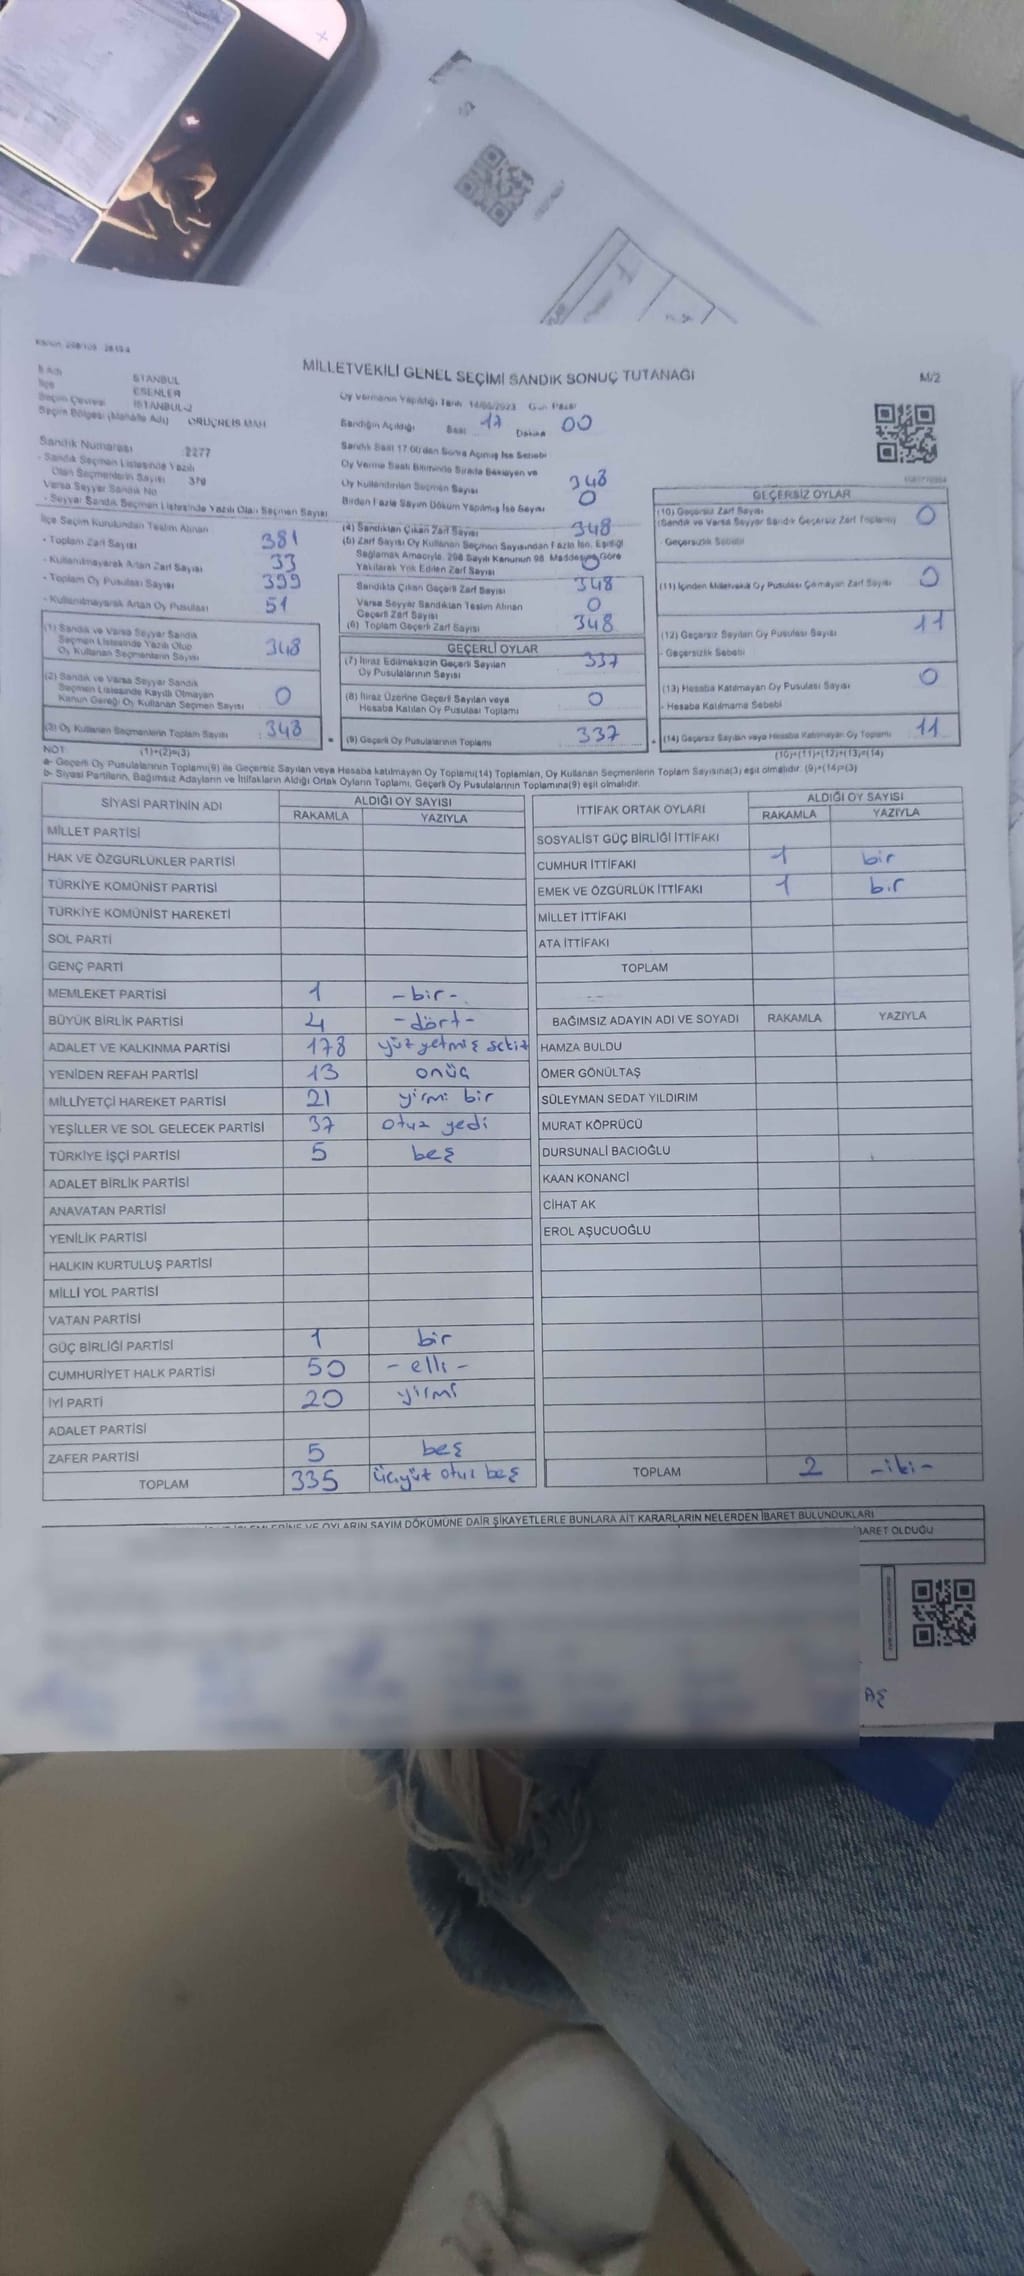 MİLLETVEKİLİ GENEL SEÇİMİ SANDIK SONUÇ TUTANAĞI
M/2
İSTANBUL
İlçe ESENLER
Seçim Çevresi İSTANBUL-2
Seçim Bölgesi (Mahalle Adı) ORUÇREİS MAH
Oy Vermenin Yapıldığı Tarih 14/05/2023 Gün Pazar
Sandığın Açıldığı Saat 17 Dakika 00
Sandık Numarası 2277
- Sandık Seçmen Listesinde Yazılı
Olan Seçmenlerin Sayısı
Varsa Seyyar Sandık No
- Seyyar Sandık Seçmen Listesinde Yazılı Olan Seçmen Sayısı
Sandık Saat 17.00'dan Sonra Açılmış İse Sebebi
Oy Verme Saati Bitiminde Sırada Bekleyen ve
Oy Kullandırılan Seçmen Sayısı 348
Birden Fazla Sayım Döküm Yapılmış İse Sayısı 0
İlçe Seçim Kurulundan Teslim Alınan
- Toplam Zarf Sayısı 381
- Kullanılmayarak Artan Zarf Sayısı 33
- Toplam Oy Pusulası Sayısı 399
- Kullanılmayarak Artan Oy Pusulası 51
(1) Sandık ve Varsa Seyyar Sandık
Seçmen Listesinde Yazılı Olup
Oy Kullanan Seçmenlerin Sayısı 348
(2) Sandık ve Varsa Seyyar Sandık
Seçmen Listesinde Kayıtlı Olmayan
Kanun Gereği Oy Kullanan Seçmen Sayısı 0
(3) Oy Kullanan Seçmenlerin Toplam Sayısı 348
(4) Sandıktan Çıkan Zarf Sayısı 348
(5) Zarf Sayısı Oy Kullanan Seçmen Sayısından Fazla İse, Eşitliği
Sağlamak Amacıyla, 298 Sayılı Kanunun 98. Maddesine Göre
Yakılarak Yok Edilen Zarf Sayısı 0
Sandıkta Çıkan Geçerli Zarf Sayısı 348
Varsa Seyyar Sandıktan Teslim Alınan
Geçerli Zarf Sayısı 0
(6) Toplam Geçerli Zarf Sayısı 348
GEÇERLİ OYLAR
(7) İtiraz Edilmeksizin Geçerli Sayılan
Oy Pusulalarının Sayısı 337
(8) İtiraz Üzerine Geçerli Sayılan veya
Hesaba Katılan Oy Pusulası Toplamı 0
(9) Geçerli Oy Pusulalarının Toplamı 337
GEÇERSİZ OYLAR
(10) Geçersiz Zarf Sayısı
(Sandık ve Varsa Seyyar Sandık Geçersiz Zarf Toplamı) 0
- Geçersizlik Sebebi
(11) İçinden Milletvekili Oy Pusulası Çıkmayan Zarf Sayısı 0
(12) Geçersiz Sayılan Oy Pusulası Sayısı 11
- Geçersizlik Sebebi
(13) Hesaba Katılmayan Oy Pusulası Sayısı 0
- Hesaba Katılmama Sebebi
(14) Geçersiz Sayılan veya Hesaba Katılmayan Oy Toplamı 11
NOT: (1)+(2)=(3)
(10)+(11)+(12)+(13)=(14)
a- Geçerli Oy Pusulalarının Toplamı(9) ile Geçersiz Sayılan veya Hesaba katılmayan Oy Toplamı(14) Toplamları, Oy Kullanan Seçmenlerin Toplam Sayısına(3) eşit olmalıdır. (9)+(14)=(3)
b- Siyasi Partilerin, Bağımsız Adayların ve İttifakların Aldığı Ortak Oyların Toplamı, Geçerli Oy Pusulalarının Toplamına(9) eşit olmalıdır.
SİYASİ PARTİNİN ADI ALDIĞI OY SAYISI
RAKAMLA YAZIYLA
MİLLET PARTİSİ
HAK VE ÖZGÜRLÜKLER PARTİSİ
TÜRKİYE KOMÜNİST PARTİSİ
TÜRKİYE KOMÜNİST HAREKETİ
SOL PARTİ
GENÇ PARTİ
MEMLEKET PARTİSİ 1 -bir-
BÜYÜK BİRLİK PARTİSİ 4 -dört-
ADALET VE KALKINMA PARTİSİ 178 yüz yetmiş sekiz
YENİDEN REFAH PARTİSİ 13 onüç
MİLLİYETÇİ HAREKET PARTİSİ 21 yirmi bir
YEŞİLLER VE SOL GELECEK PARTİSİ 37 otuz yedi
TÜRKİYE İŞÇİ PARTİSİ 5 beş
ADALET BİRLİK PARTİSİ
ANAVATAN PARTİSİ
YENİLİK PARTİSİ
HALKIN KURTULUŞ PARTİSİ
MİLLİ YOL PARTİSİ
VATAN PARTİSİ
GÜÇ BİRLİĞİ PARTİSİ 1 bir
CUMHURİYET HALK PARTİSİ 50 -elli-
İYİ PARTİ 20 yirmi
ADALET PARTİSİ
ZAFER PARTİSİ 5 beş
TOPLAM 335 üçyüz otuz beş
İTTİFAK ORTAK OYLARI ALDIĞI OY SAYISI
RAKAMLA YAZIYLA
SOSYALİST GÜÇ BİRLİĞİ İTTİFAKI
CUMHUR İTTİFAKI 1 bir
EMEK VE ÖZGÜRLÜK İTTİFAKI 1 bir
MİLLET İTTİFAKI
ATA İTTİFAKI
TOPLAM
BAĞIMSIZ ADAYIN ADI VE SOYADI RAKAMLA YAZIYLA
HAMZA BULDU
ÖMER GÖNÜLTAŞ
SÜLEYMAN SEDAT YILDIRIM
MURAT KÖPRÜCÜ
DURSUNALİ BACIOĞLU
KAAN KONANCİ
CİHAT AK
EROL AŞUCUOĞLU
TOPLAM 2 -iki-
VE OYLARIN SAYIM DÖKÜMÜNE DAİR ŞİKAYETLERLE BUNLARA AİT KARARLARIN NELERDEN İBARET BULUNDUKLARI
BARET OLDUĞU